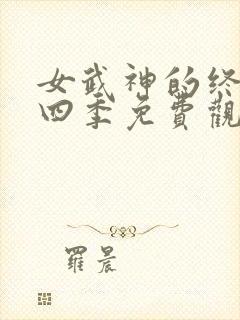 女武神的终
四季免費觀
羅晨